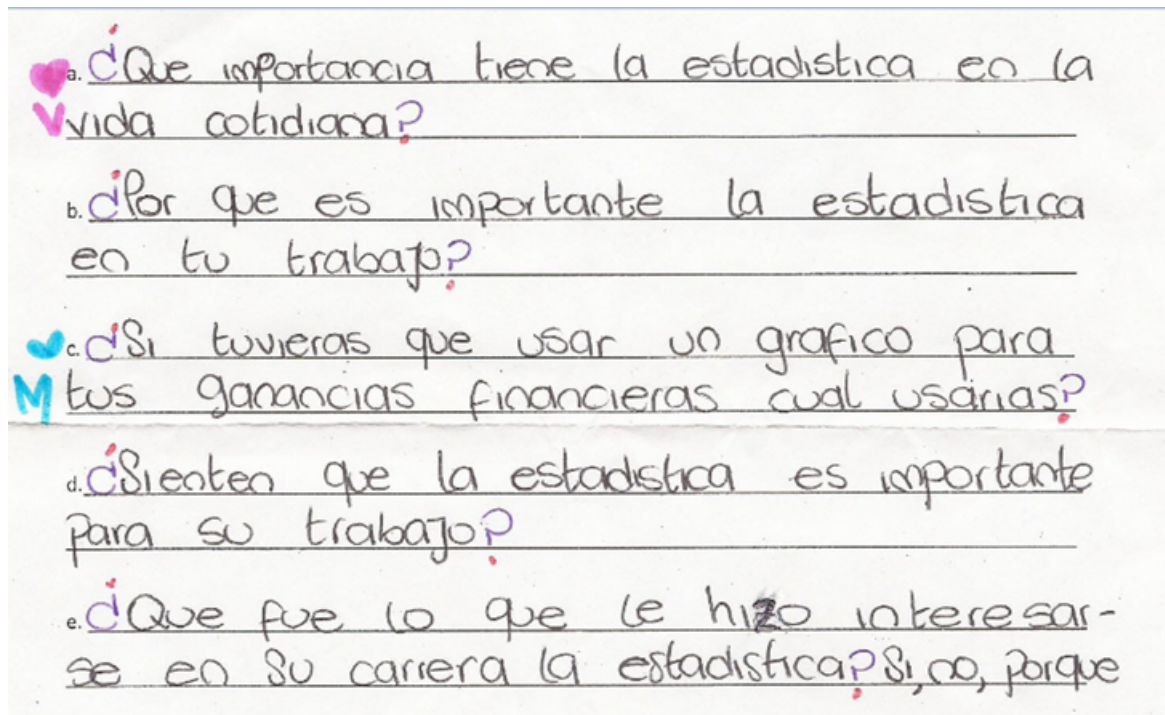 a. ¿Que importancia tiene la estadistica en la
V vida cotidiana?
b. ¿Por que es importante la estadistica
en tu trabajo?
c. ¿Si tuvieras que usar un grafico para
M tus ganancias financieras cual usarias?
d. ¿Sienten que la estadistica es importante
para su trabajo?
e. ¿Que fue lo que le hizo interesar-
se en su carrera la estadistica? Si, no, porque